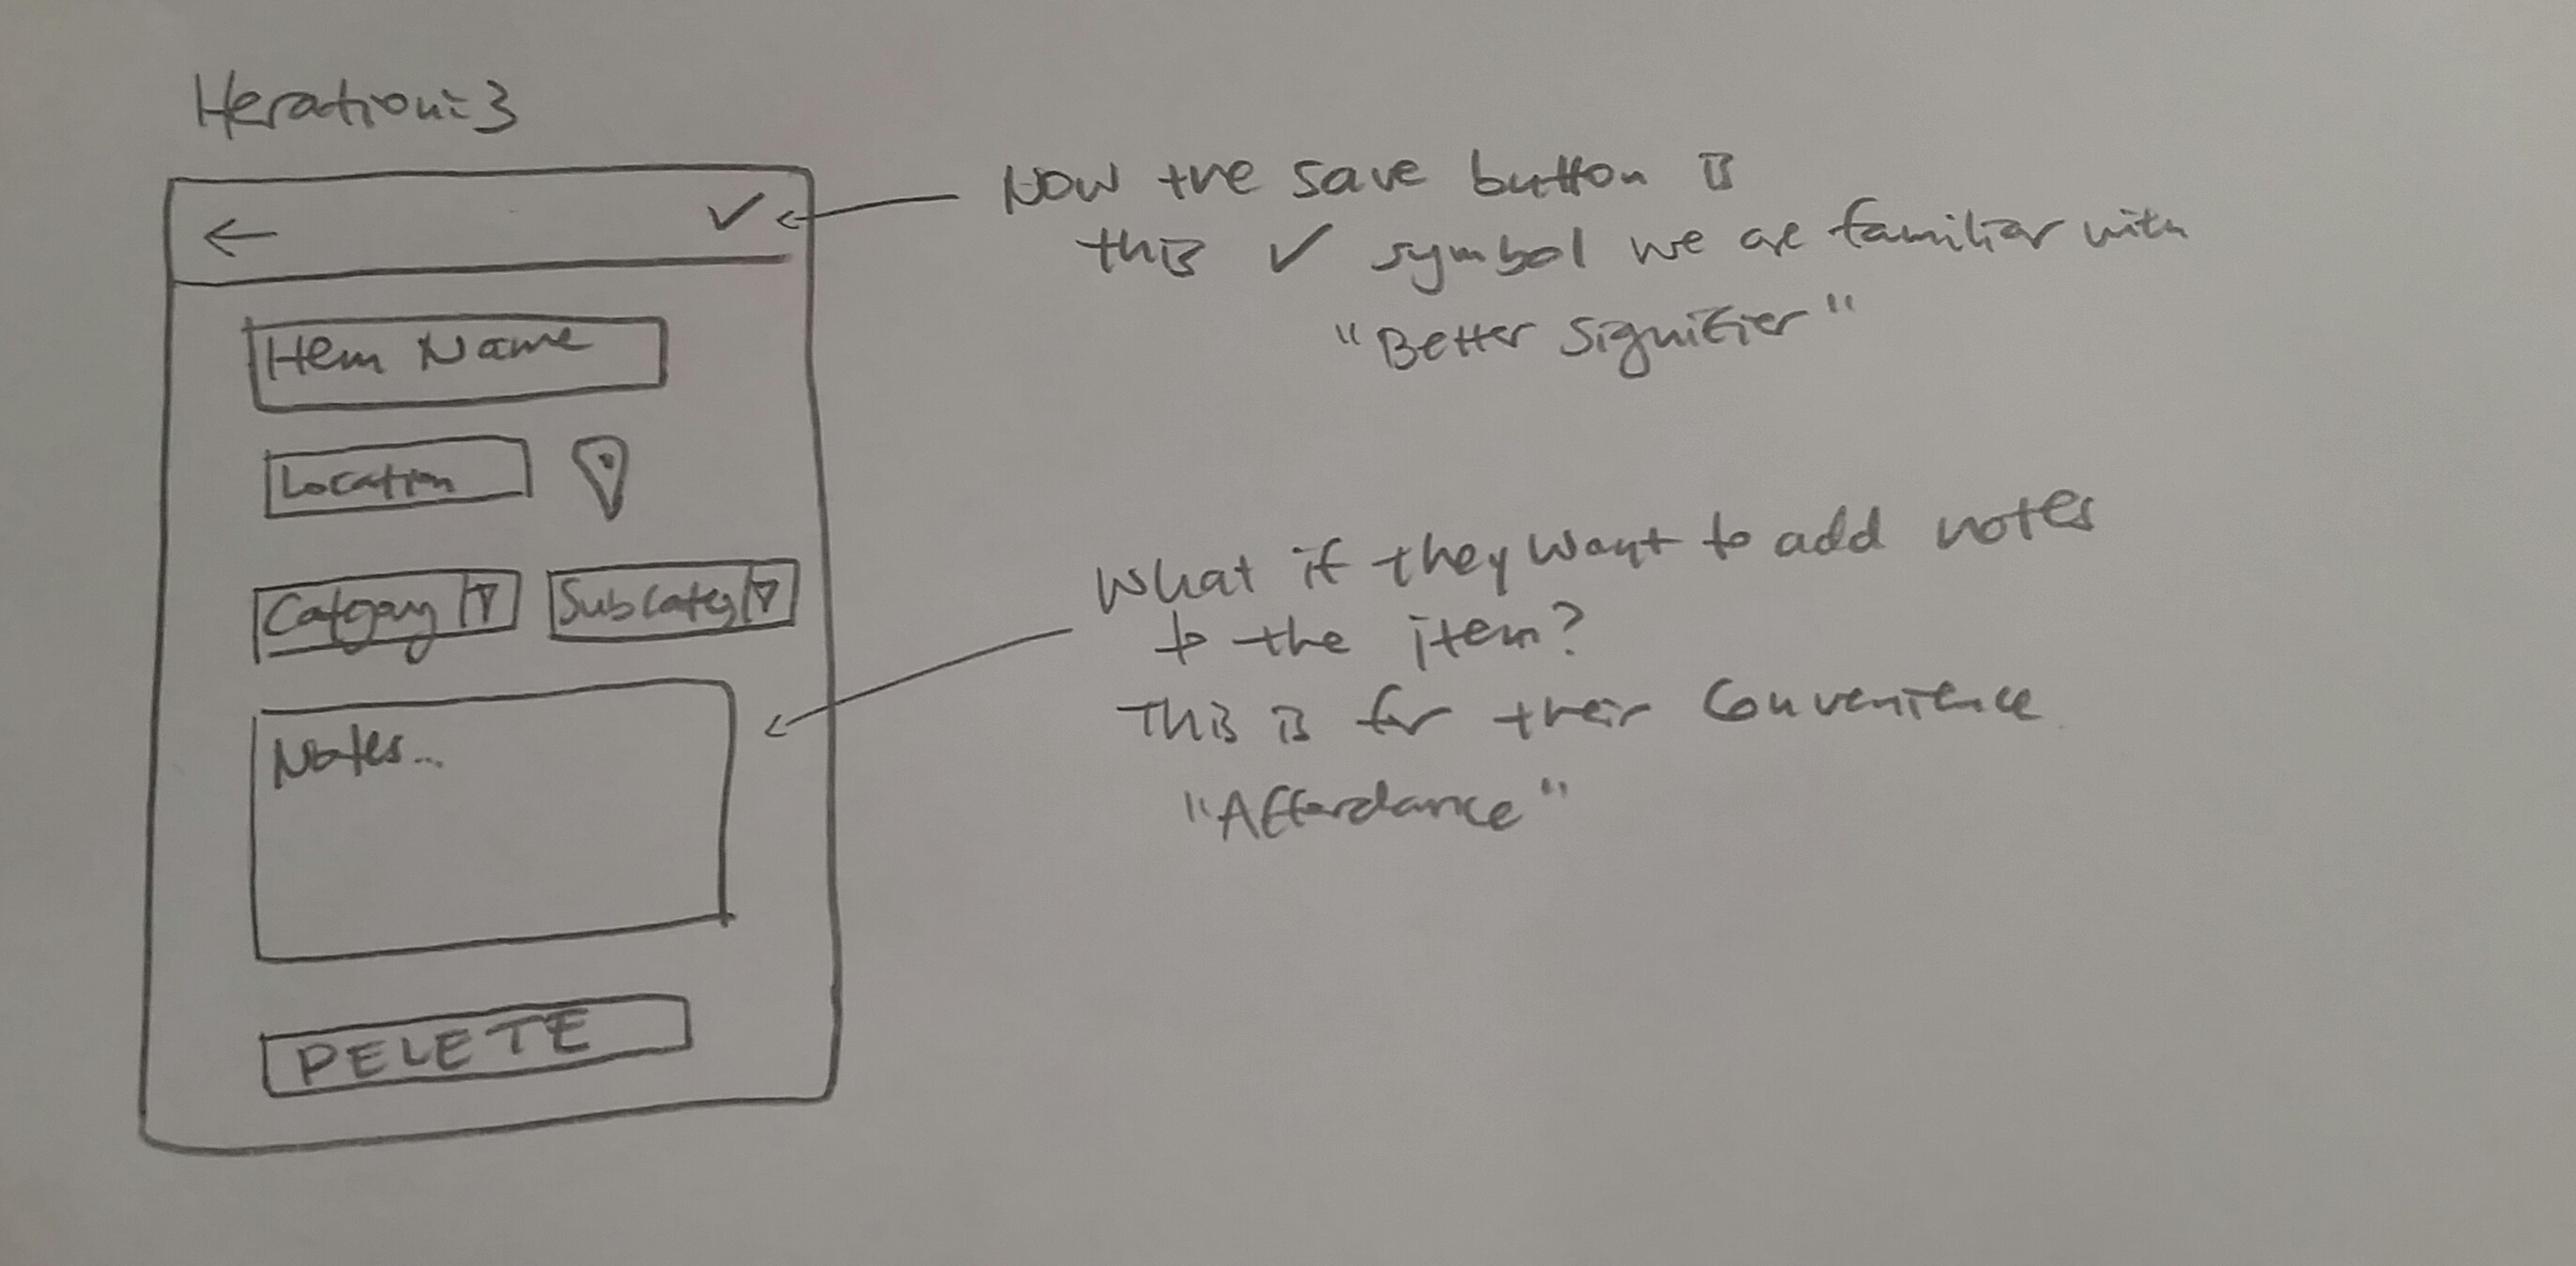 Iteration: 3
← ✓
Item Name
Location
Catgory ▽ Subcateg ▽
Notes...
DELETE
Now the save button is
this ✓ symbol we are familiar with
"Better Signifier"
What if they want to add notes
to the item?
This is for their convenience
"Affordance"